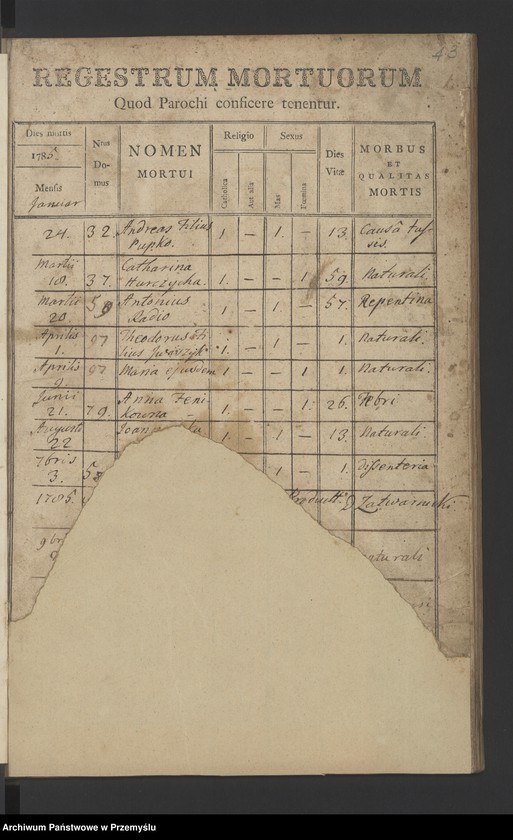 43
REGESTRUM MORTUORUM
Quod Parochi conficere tenentur.
Dies mortis
1785.
Mensis
Januar
Nrus Domus
NOMEN
MORTUI
Religio
Catholica
Aut alia
Sexus
Mas
Fœmina
Dies
Vitæ
MORBUS
ET
QUALITAS
MORTIS
24. 32. Andreas Filius Pupko. 1. — 1. — 13. Causâ tussis.
Martii 18. 37. Catharina 1. — — 1. 59. Naturali
Martii 20 59 Antonius Radio 1. — 1. 57. Repentina
Aprilis 1. 97 Theodorus filius 1. — 1. 1. Naturali.
Aprilis 97 Maria ejusdem 1 — — 1 1. Naturali.
Junii 21. 79. Anna 1. — — 1. 26. Febri
Augusti 22 1 — 1 13. Naturali
7bris 3. 1 — 1. Dissenteria
1785. Zatwarnicki
9br
naturali
Archiwum Państwowe w Przemyślu